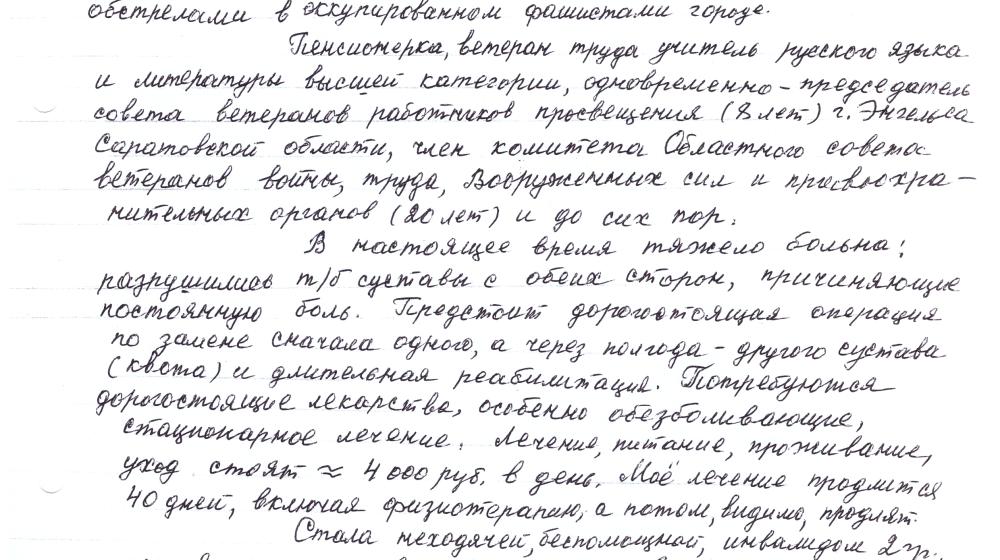 обстрелами в оккупированном фашистами городе.
Пенсионерка, ветеран труда учитель русского языка
и литературы высшей категории, одновременно – председатель
совета ветеранов работников просвещения (8 лет) г. Энгельса
Саратовской области, член комитета Областного совета
ветеранов войны, труда, Вооруженных сил и правоохра–
нительных органов (20 лет) и до сих пор.
В настоящее время тяжело больна:
разрушились т/б суставы с обеих сторон, причиняющие
постоянную боль. Предстоит дорогостоящая операция
по замене сначала одного, а через полгода – другого сустава
(квота) и длительная реабилитация. Потребуются
дорогостоящие лекарства, особенно обезболивающие,
стационарное лечение. Лечение, питание, проживание,
уход стоят ≈ 4000 руб. в день. Моё лечение продлится
40 дней, включая физиотерапию, а потом, видимо, продлят.
Стала неходячей, беспомощной, инвалидом 2 гр.,